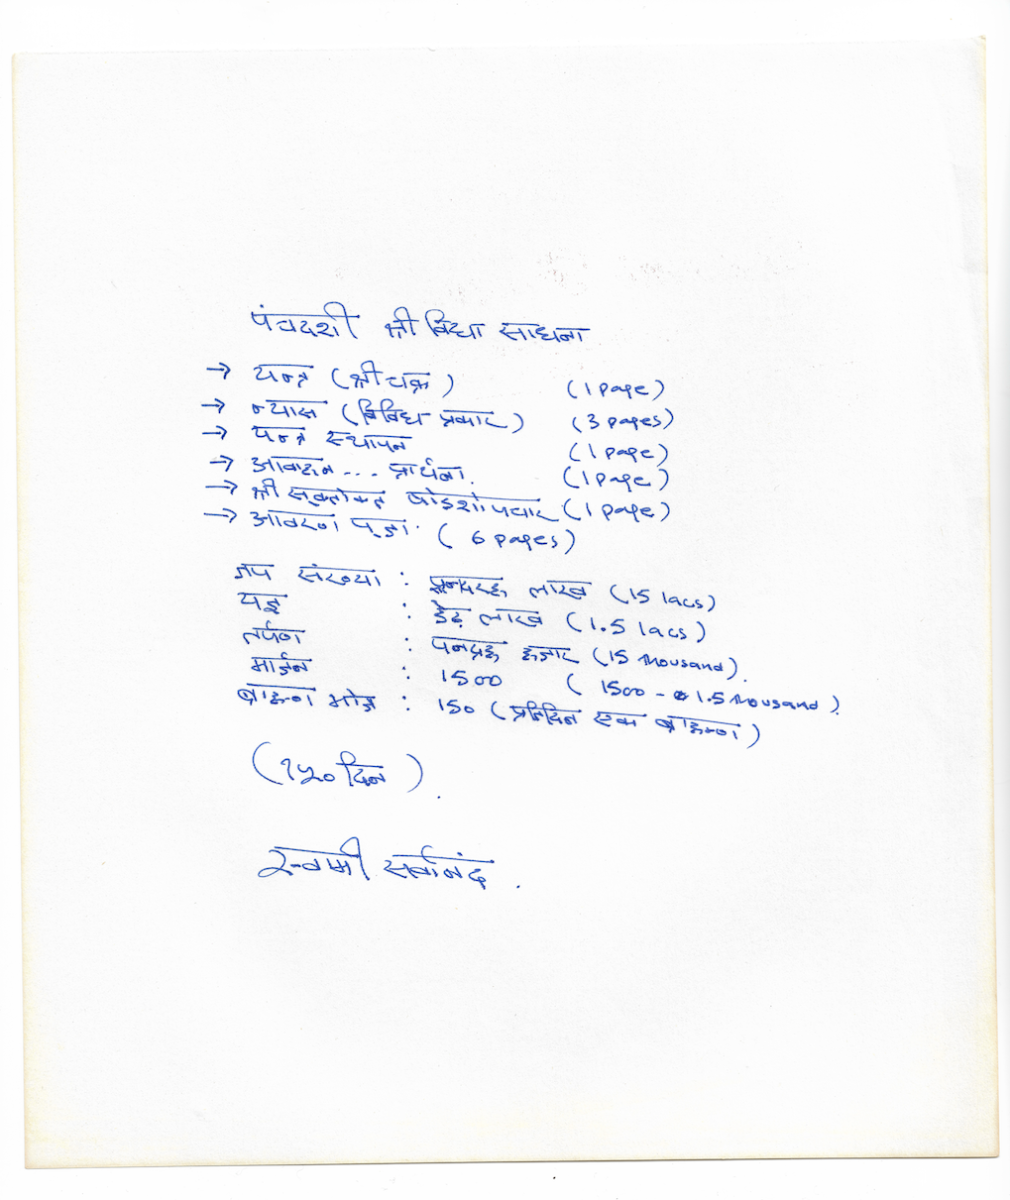 पंचदशी श्री विद्या साधना
→ यन्त्र (श्री चक्र) (1 page)
→ न्यास (विविध प्रकार) (3 pages)
→ यन्त्र स्थापन (1 page)
→ आवाहन ... प्रार्थना. (1 page)
→ श्री सूक्तोक्त षोडशोपचार (1 page)
→ आवरण पूजा (6 pages)
जप संख्या : पन्द्रह लाख (15 lacs)
यज्ञ : डेढ़ लाख (1.5 lacs)
तर्पण : पनद्रह हजार (15 thousand).
मार्जन : 1500 (1500 - 1.5 thousand).
ब्राह्मण भोज : 150 (प्रतिदिन एक ब्राह्मण)
(१५० दिन).
स्वामी सर्वानंद.